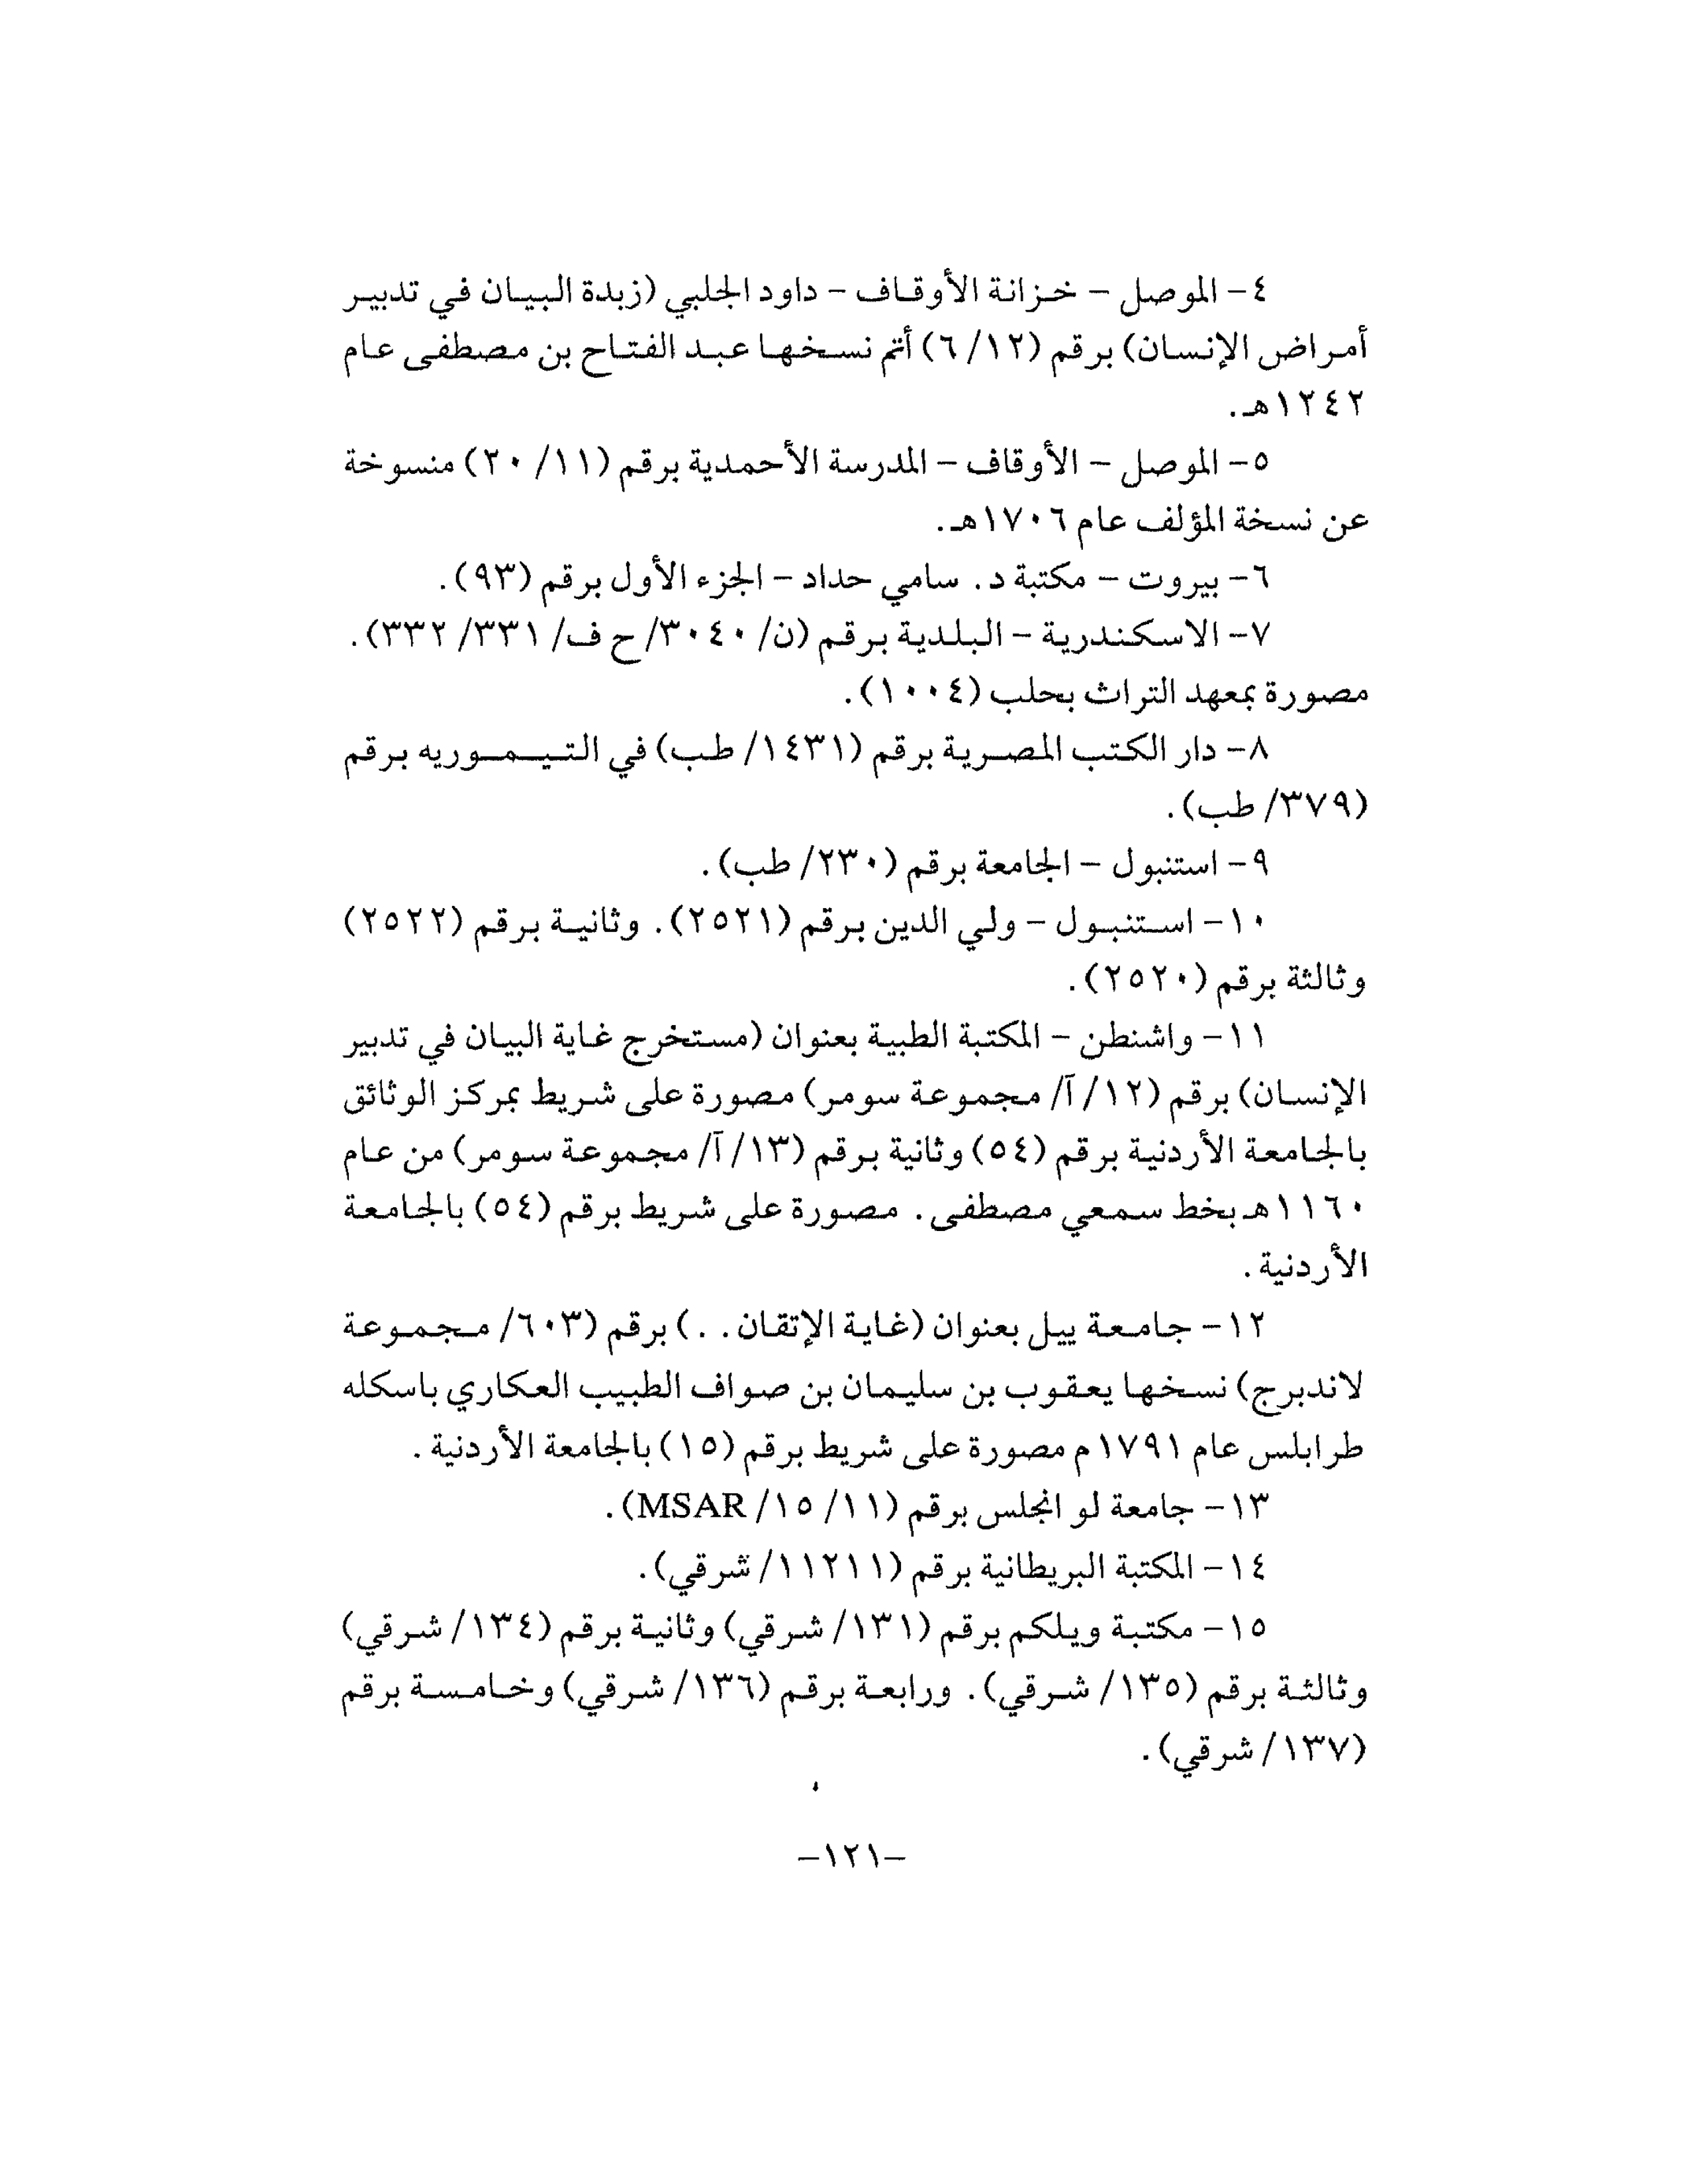 ٤- الموصل - خزانة الأوقاف - داود الجلبي (زبدة البيان في تدبير
أمراض الإنسان) برقم (١٢/ ٦) أتم نسخها عبد الفتاح بن مصطفى عام
١٢٤٢هـ.
٥- الموصل - الأوقاف - المدرسة الأحمدية برقم (١١/ ٢٠) منسوخة
عن نسخة المؤلف عام ١٧٠٦هـ.
٦- بيروت - مكتبة د. سامي حداد - الجزء الأول برقم (٩٣).
٧- الاسكندرية - البلدية برقم (ن/ ٣٠٤٠/ ح ف/ ٣٣١/ ٣٣٢).
مصورة بمعهد التراث بحلب (١٠٠٤).
٨- دار الكتب المصرية برقم (١٤٣١/ طب) في التيموريه برقم
(٣٧٩/ طب).
٩- استنبول - الجامعة برقم (٢٣٠/ طب).
١٠- استنبول - ولي الدين برقم (٢٥٢١). وثانية برقم (٢٥٢٢)
وثالثة برقم (٢٥٢٠).
١١- واشنطن - المكتبة الطبية بعنوان (مستخرج غاية البيان في تدبير
الإنسان) برقم (١٢/ آ/ مجموعة سومر) مصورة على شريط بمركز الوثائق
بالجامعة الأردنية برقم (٥٤) وثانية برقم (١٣/ آ/ مجموعة سومر) من عام
١١٦٠هـ بخط سمعي مصطفى. مصورة على شريط برقم (٥٤) بالجامعة
الأردنية.
١٢- جامعة ييل بعنوان (غاية الإتقان. .) برقم (٦٠٣/ مجموعة
لاندبرج) نسخها يعقوب بن سليمان بن صواف الطبيب العكاري باسكله
طرابلس عام ١٧٩١م مصورة على شريط برقم (١٥) بالجامعة الأردنية.
١٣- جامعة لو انجلس برقم (١١/ ١٥/ MSAR).
١٤- المكتبة البريطانية برقم (١١٢١١/ شرقي).
١٥- مكتبة ويلكم برقم (١٣١/ شرقي) وثانية برقم (١٣٤/ شرقي)
وثالثة برقم (١٣٥/ شرقي). ورابعة برقم (١٣٦/ شرقي) وخامسة برقم
(١٣٧/ شرقي).
-١٢١-